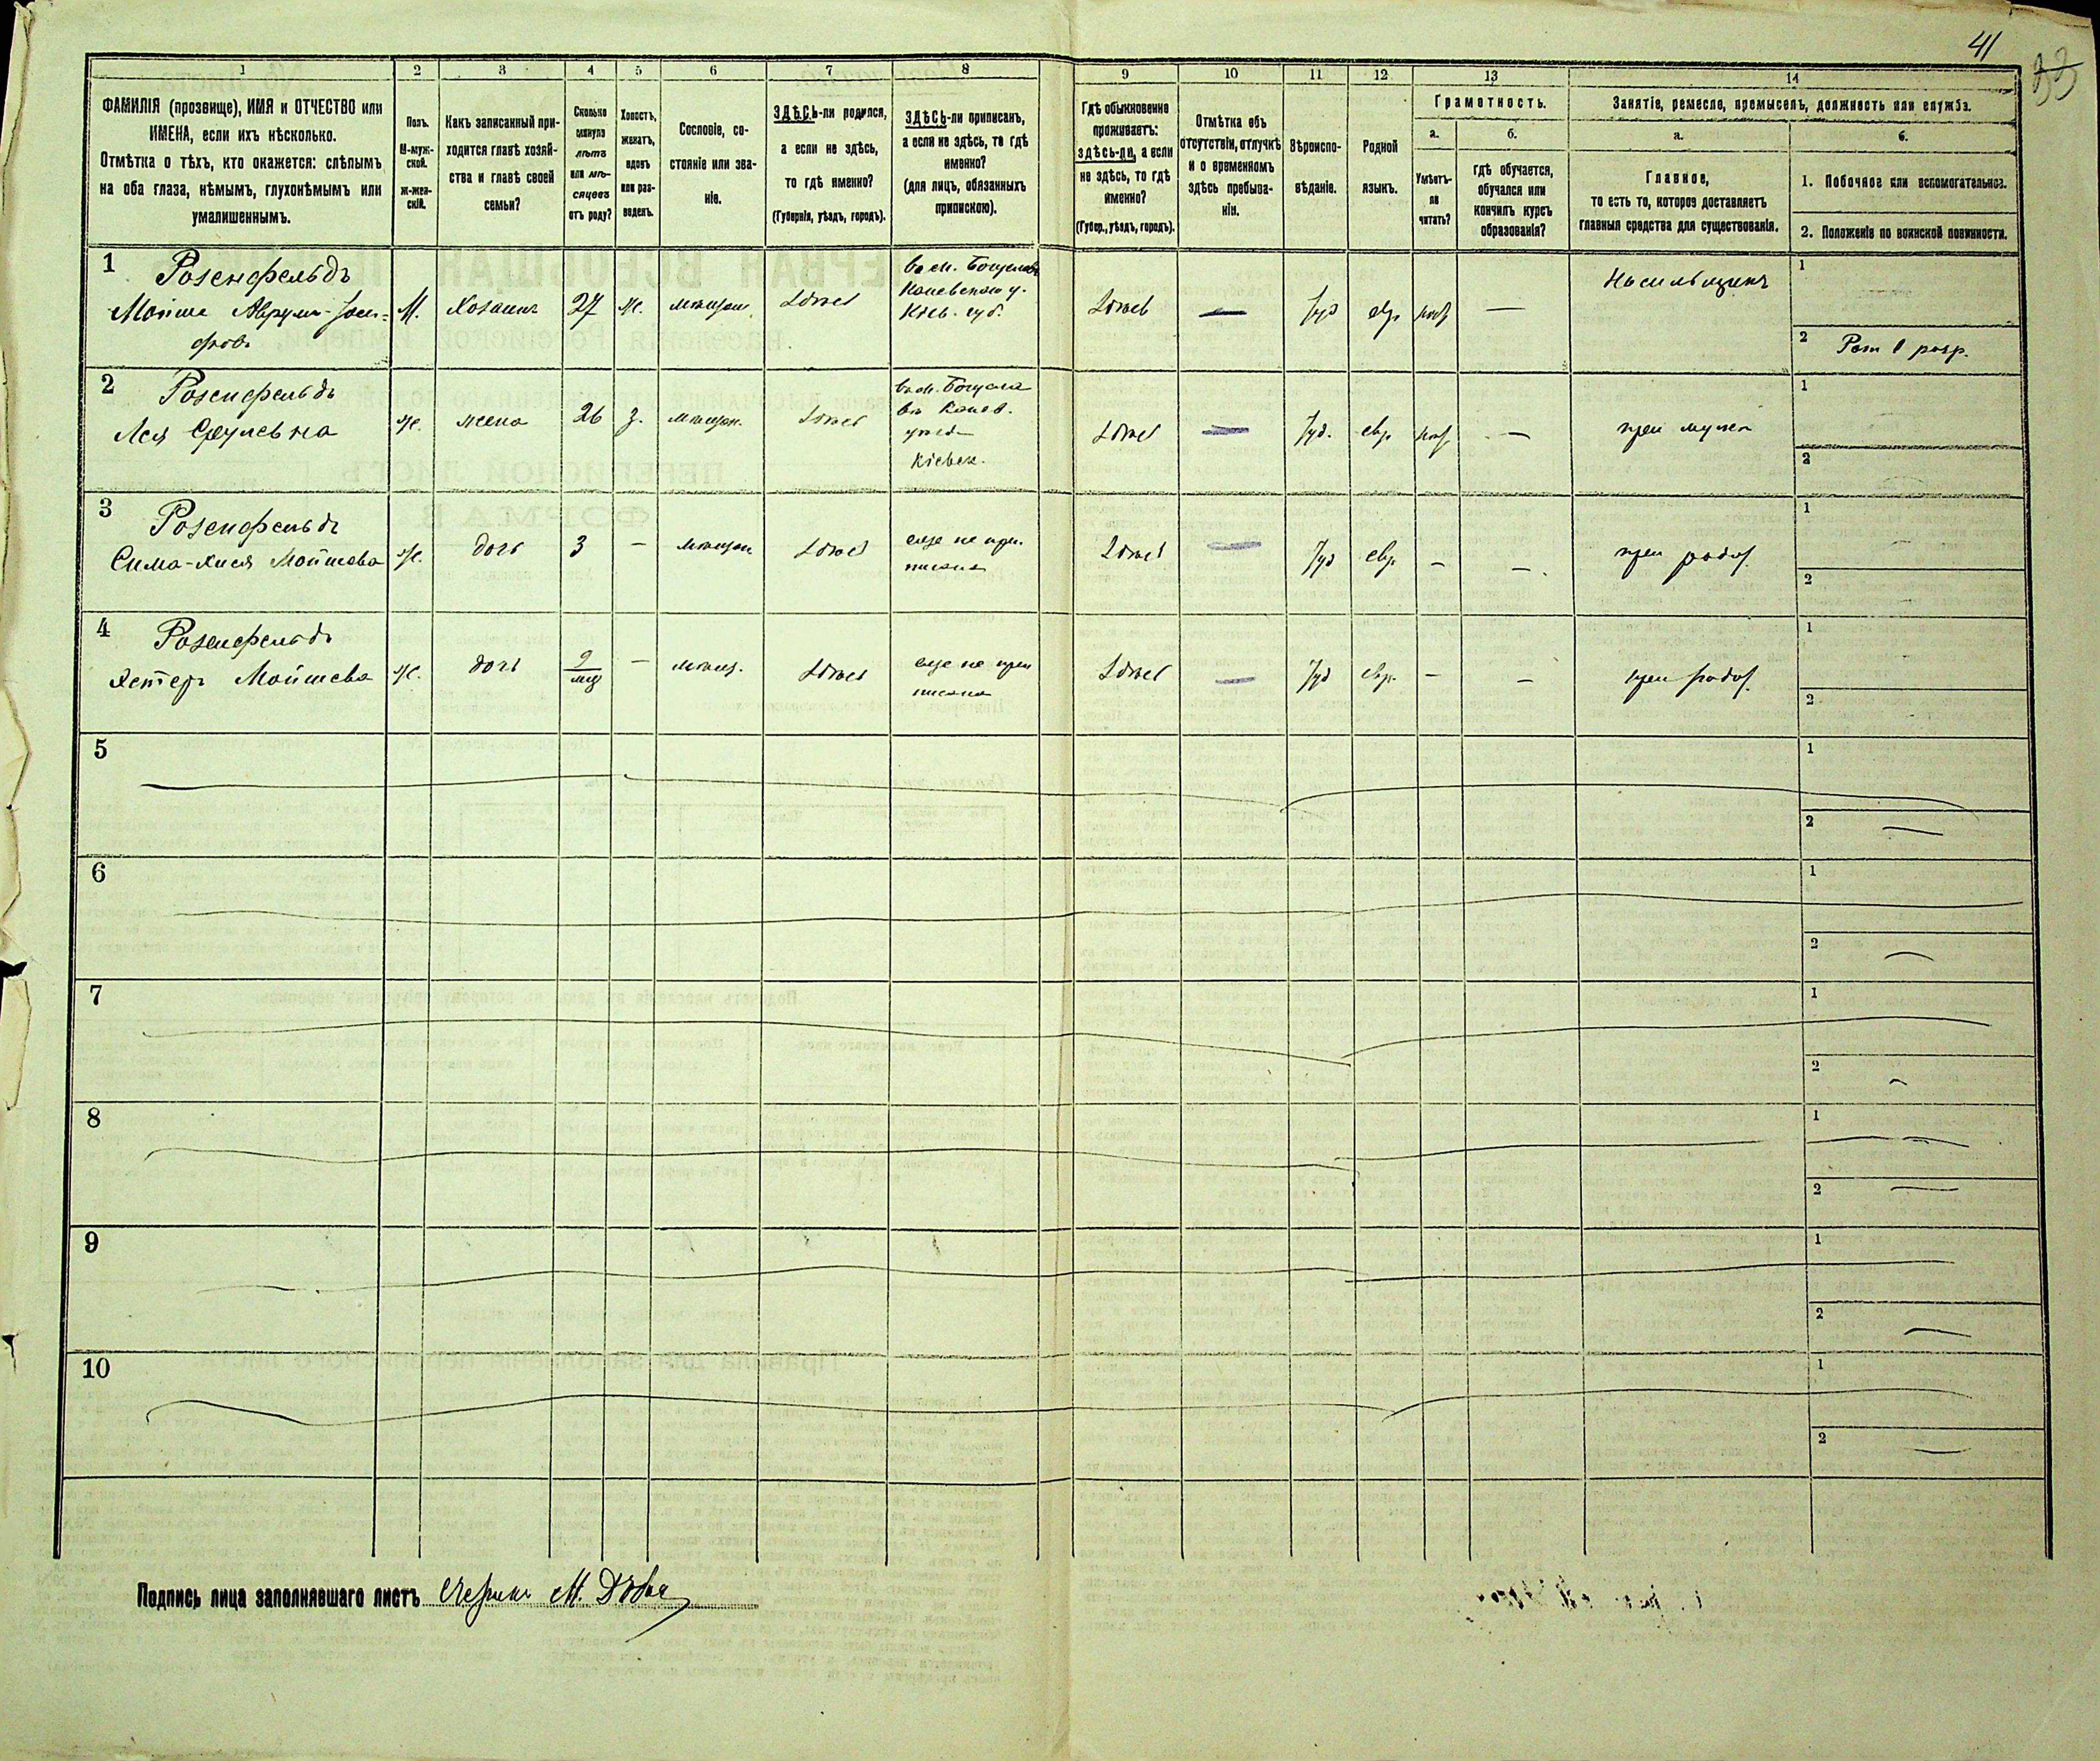 41
33
1 2 3 4 5 6 7 8 9 10 11 12 13 14
ФАМИЛІЯ (прозвище), ИМЯ и ОТЧЕСТВО или
ИМЕНА, если ихъ нѣсколько.
Отмѣтка о тѣхъ, кто окажется: слѣпымъ
на оба глаза, нѣмымъ, глухонѣмымъ или
умалишеннымъ.
Полъ.
М-муж-
ской.
Ж-жен-
скій.
Какъ записанный при-
ходится главѣ хозяй-
ства и главѣ своей
семьи?
Сколько
минуло
лѣтъ
или мѣ-
сяцевъ
отъ роду?
Холостъ,
женатъ,
вдовъ
или раз-
веденъ.
Сословіе, со-
стояніе или зва-
ніе.
ЗДѢСЬ-ли родился,
а если не здѣсь,
то гдѣ именно?
(Губернія, уѣздъ, городъ).
ЗДѢСЬ-ли приписанъ,
а если не здѣсь, то гдѣ
именно?
(для лицъ, обязанныхъ
припискою).
Гдѣ обыкновенно
проживаетъ:
здѣсь-ли, а если
не здѣсь, то гдѣ
именно?
(Губер., уѣздъ, городъ).
Отмѣтка объ
отсутствіи, отлучкѣ
и о временномъ
здѣсь пребыва-
ніи.
Вѣроиспо-
вѣданіе.
Родной
языкъ.
Грамотность.
а.
Умѣетъ-
ли
читать?
б.
гдѣ обучается,
обучался или
кончилъ курсъ
образованія?
Занятіе, ремесло, промыселъ, должность или служба.
а.
Главное,
то есть то, которое доставляетъ
главныя средства для существованія.
б.
1. Побочное или вспомогательное.
2. Положеніе по воинской повинности.
1 Розенфельдъ
Мойше Аврумъ-Іосі-
фовъ
М. Хозяинъ 27 ж. мѣщан. здѣсь
въ м. Богуславѣ
Каневскаго у.
Кіев. губ.
здѣсь — Іуд евр. —
Носильщикъ
1
2 Рат 1 разр.
2 Розенфельдъ
Лея Сруlевна
ж. жена 26 з. мѣщан. здѣсь
въ м. Богусла
вѣ Канев.
уѣзд
Кіевск.
здѣсь — Іуд. евр. —
при мужѣ
1
2
3 Розенфельдъ
Сима-Хися Мойшева
ж. дочь 3 — мѣщан здѣсь
еще не при-
писана
здѣсь — Іуд евр. — —
при родит.
1
2
4 Розенфельдъ
Хестеръ Мойшева
ж. дочь 9 мц — мѣщ. здѣсь
еще не при
писана
здѣсь — Іуд евр. — —
при родит.
1
2
5
1
2
6
1
2
7
1
2
8
1
2
9
1
2
10
1
2
Подпись лица заполнявшаго листъ